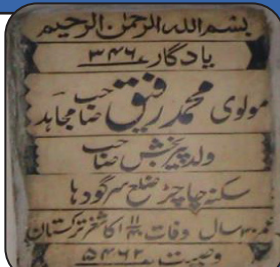 بسم اللہ الرحمٰن الرحیم
یادگار ۳۴۶
مولوی محمد رفیق صاحب مجاہد
ولد پیر بخش صاحب
سکنہ چاچڑ ضلع سرگودہا
سال وفات کاشغر ترکستان
وصیت ۵۴۶۲